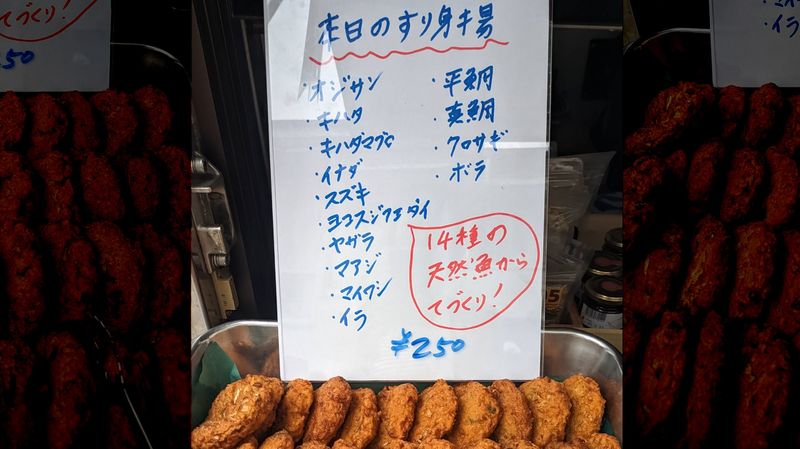 本日のすり身揚
・オジサン
・キハタ
・キハダマグロ
・イナダ
・スズキ
・ヨコスジフエダイ
・ヤガラ
・マアジ
・マイワシ
・イラ
・平鯛
・真鯛
・クロサギ
・ボラ
14種の
天然魚から
てづくり!
¥250